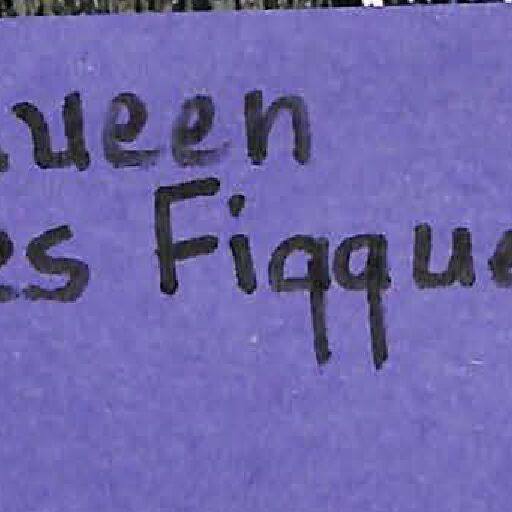 ueen
es Fiqque